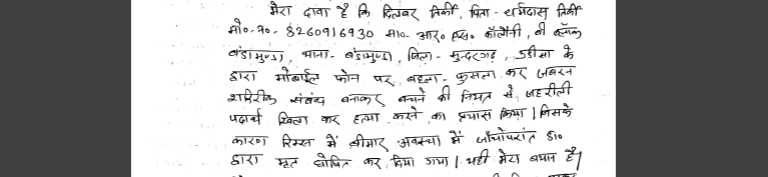 मेरा दावा है कि दिलवर तिर्की, पिता - धर्मदास तिर्की
मो०-न०- 8260916930 सा०- आर० एस० कॉलोनी, बी ब्लॉक
बंडामुण्डा, थाना- बंडामुण्डा, जिला- सुन्दरगढ़, उडीसा के
द्वारा मोबाईल फोन पर बहला-फुसला कर जबरन
शारीरिक संबंध बनाकर बचने की नियत से जहरीली
पदार्थ खिला कर हत्या करने का प्रयास किया। जिसके
कारण रिम्स में बीमार अवस्था में जाँचोपरांत डा०
द्वारा मृत घोषित कर दिया गया। यही मेरा बयान है।